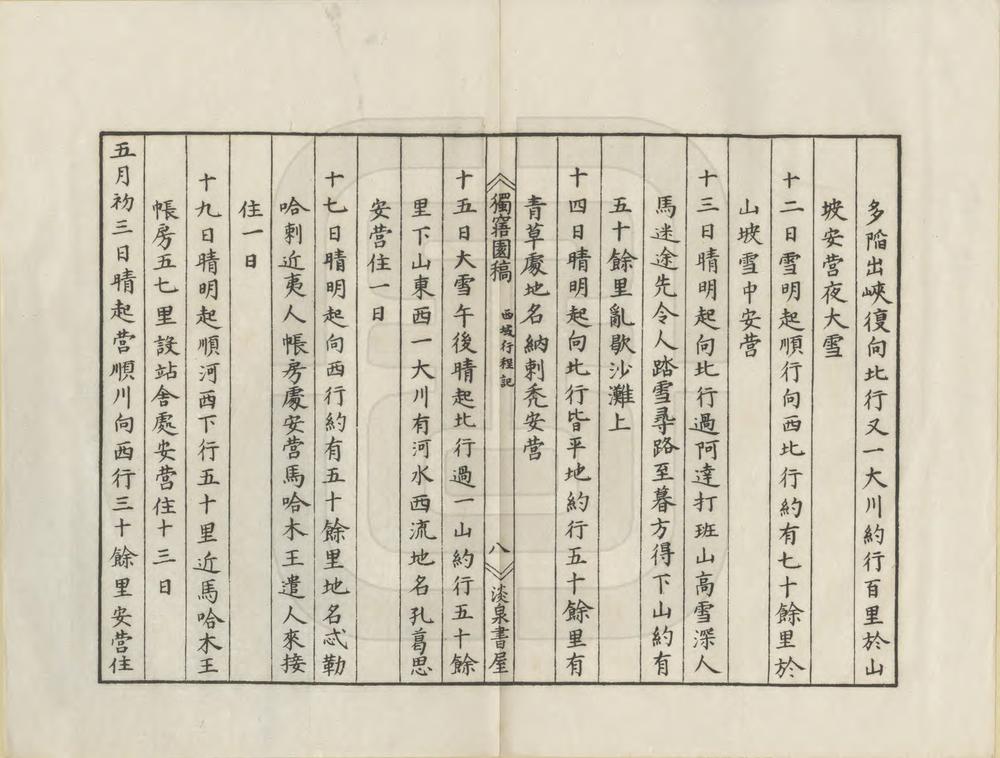 多陷出峽復向北行又一大川約行百里於山
坡安營夜大雪
十二日雪明起順行向西北行約有七十餘里於
山坡雪中安營
十三日晴明起向北行過阿達打班山高雪深人
馬迷途先令人踏雪尋路至暮方得下山約有
五十餘里亂歇沙灘上
十四日晴明起向北行皆平地約行五十餘里有
青草處地名納剌禿安營
獨寤園稿 西域行程記 八 淡泉書屋
十五日大雪午後晴起北行過一山約行五十餘
里下山東西一大川有河水西流地名孔葛思
安營住一日
十七日晴明起向西行約有五十餘里地名忒勒
哈剌近夷人帳房處安營馬哈木王遣人來接
住一日
十九日晴明起順河西下行五十里近馬哈木王
帳房五七里設站舍處安營住十三日
五月初三日晴起營順川向西行三十餘里安營住